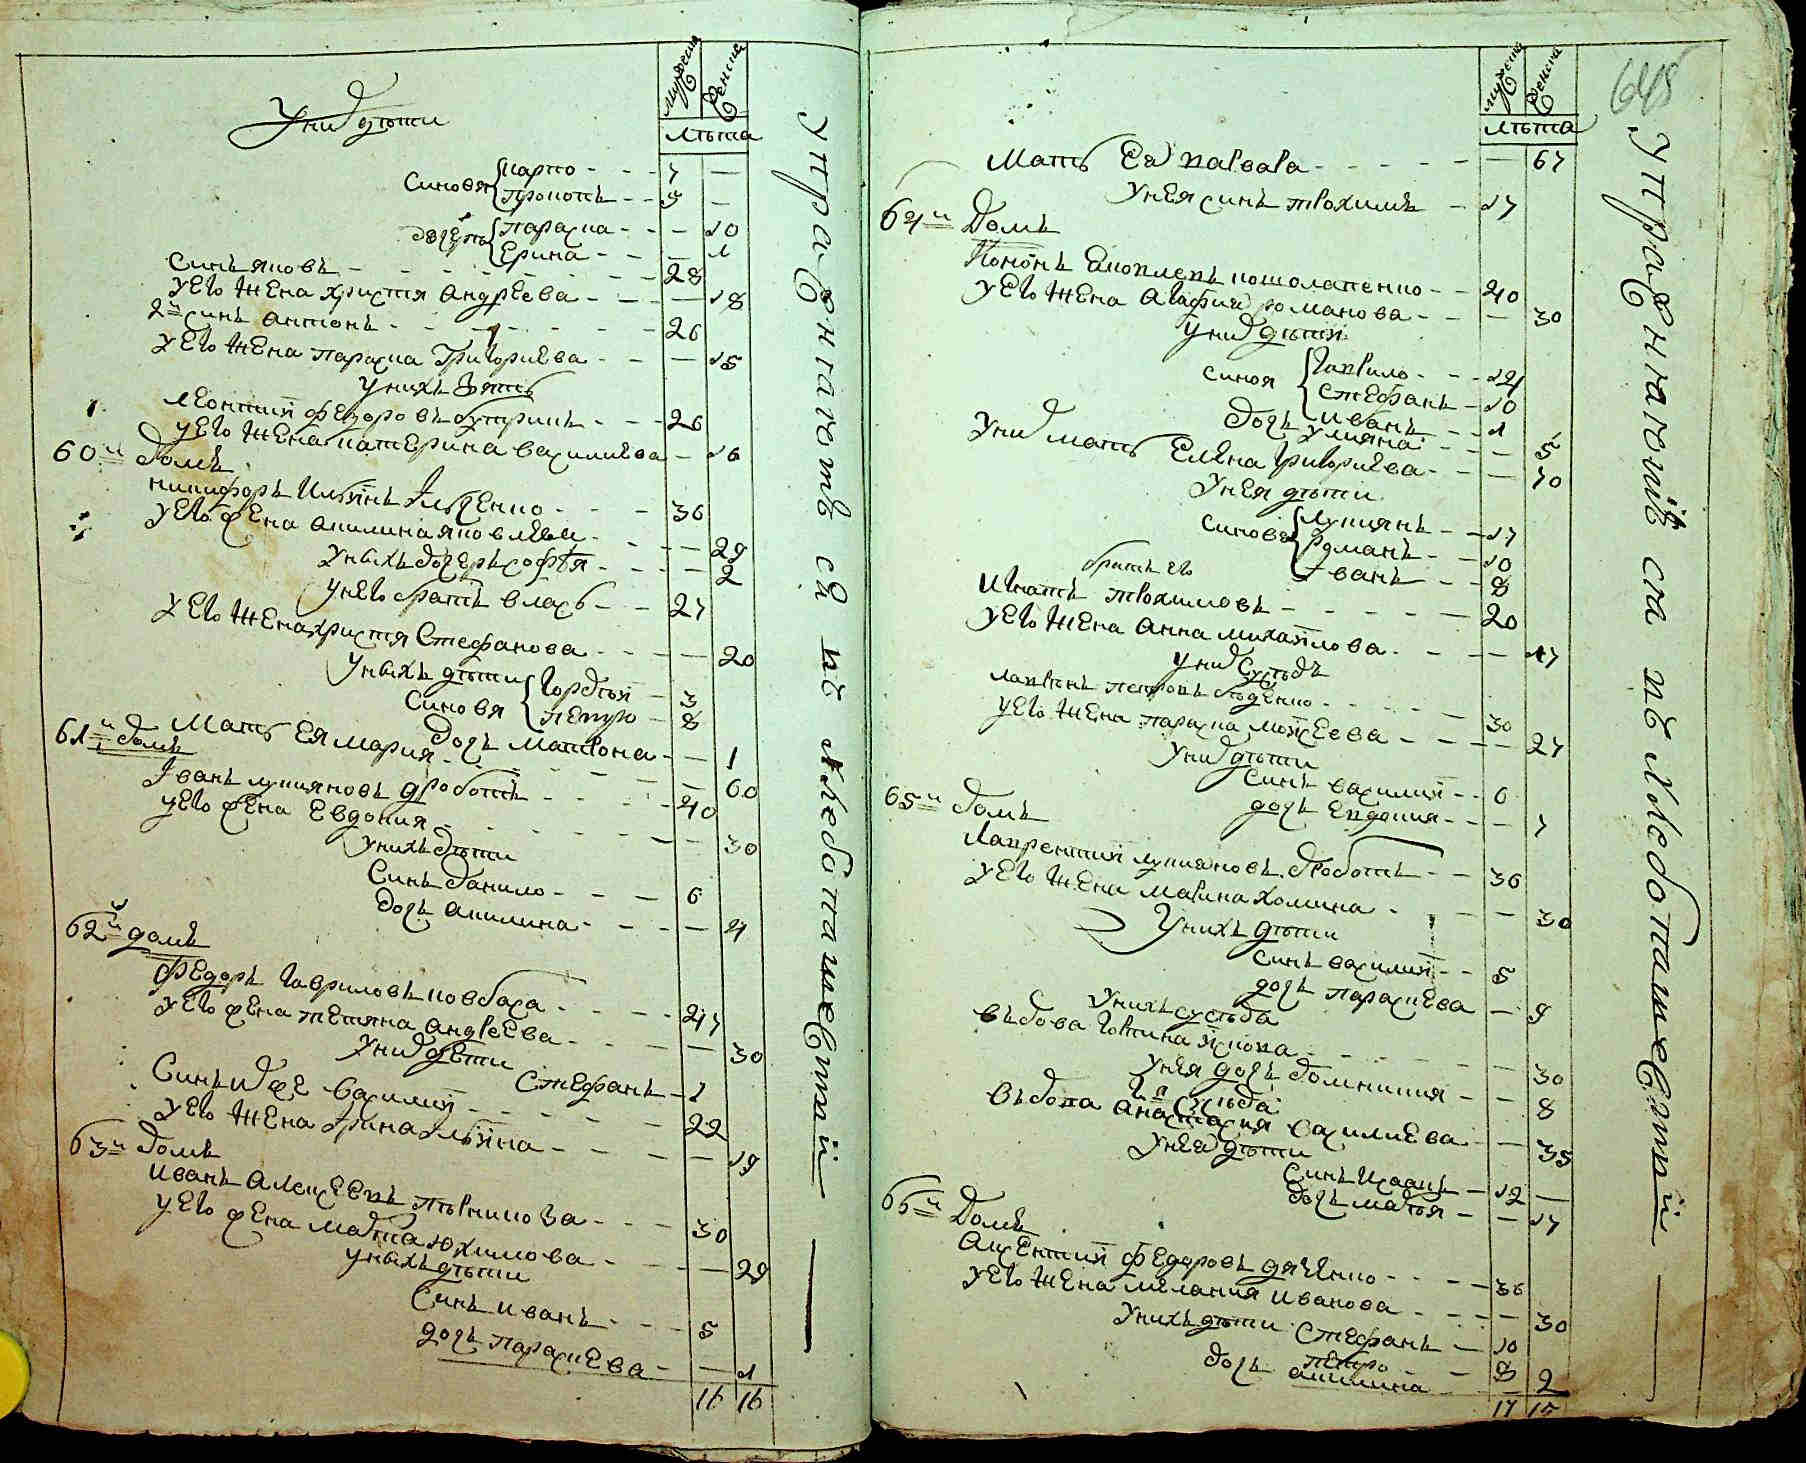 мужеска
женска
лѣта
Унид дѣти
Синовя
Карпо - - - 7 —
Прокопъ - - 5 —
дочерѣ
Параска - - — 10
Ерина - - — 1
Синъ яковъ - - - - 28
Уего жена христя андреева - - - — 18
2й синъ антонъ - - - - 26
Уего жена параска Григориева - - — 15
Унихъ зять
леонтий федоровъ - - - 26
Уего жена катерина василиева — 16
60й Домъ
никифоръ Ильинъ Ильченко - - - 36
Уего жена акилина яковлева - - — 29
Уныхъ дочеръ софѣя - - - — 2
Унего братъ власъ - - 27
Уего жена христя Стефанова - - - — 20
Уныхъ дѣти
Синовя
Гордѣй — 3
Петро — 8
дочъ матрона - — 1
Мать Ея мария - - - — 60
61й домъ
Іванъ лукияновъ дроботъ - - - 40
Уего жена Евдокия - - - — 30
Унихъ дѣти
Синъ данило - - — 6
дочъ акилина - - - — 4
62й домъ
федоръ гавриловъ ковбаса - - - 47
Уего жена тетяна андреева - - - — 30
Унид дети
Стефанъ — 1
Синъ идже василий - - - 22
Уего жена Ірина Ільїна - - - — 19
63й Домъ
иванъ алексеевъ - - - 30
Уего жена марта юхимова - - - — 29
Уныхъ дѣти
Синъ иванъ - - - 5
дочъ параскева - — 1
16 16
упражняютъ ся въ хлебопашествѣ
648
мужеска
женска
лѣта
Мать Ея варвара - - - — 67
Унея синъ трохимъ — 17
64й Домъ
Кононъ - - 40
Уего жена агафия романова - - — 30
Унид дѣти
Синовя
Гаврило - - - 14
Стефанъ — 10
иванъ - - 1
дочъ улияна - - — 5
Унид мать Елена григориева - - — 70
Унея дѣти
Синовя
Лукиянъ - - 17
Романъ - - 10
Іванъ - - 8
братъ его
игнатъ трохимовъ - - - - 20
Уего жена анна михайлова - - — 17
Унид Сусѣдъ
лавринъ петровъ - - - 30
Уего жена параска мойсеева - - - — 27
Унид дѣти
Синъ василий - - 6
дочъ Евдокия - - — 7
65й домъ
Лаврентий лукияновъ дроботъ - - 36
Уего жена марина хомина - - — 30
Унихъ дѣти
Синъ василий - - 5
дочъ параскева — 9
Унихъ сусѣда
вѣдова - - - — 30
Унея дочъ домникия - — 8
сусѣда
вѣдова анастасия василиева - — 35
Унея дѣти
Синъ Исаакъ — 12 —
дочъ марья - — 17
66й Домъ
авксентий федоровъ дяченко - - - 36
Уего жена мелания иванова - - - — 30
Унихъ дѣти Стефанъ — 10
петро - - 8
дочъ акилина — 2
17 15
упражняютъ ся въ хлебопашествѣ